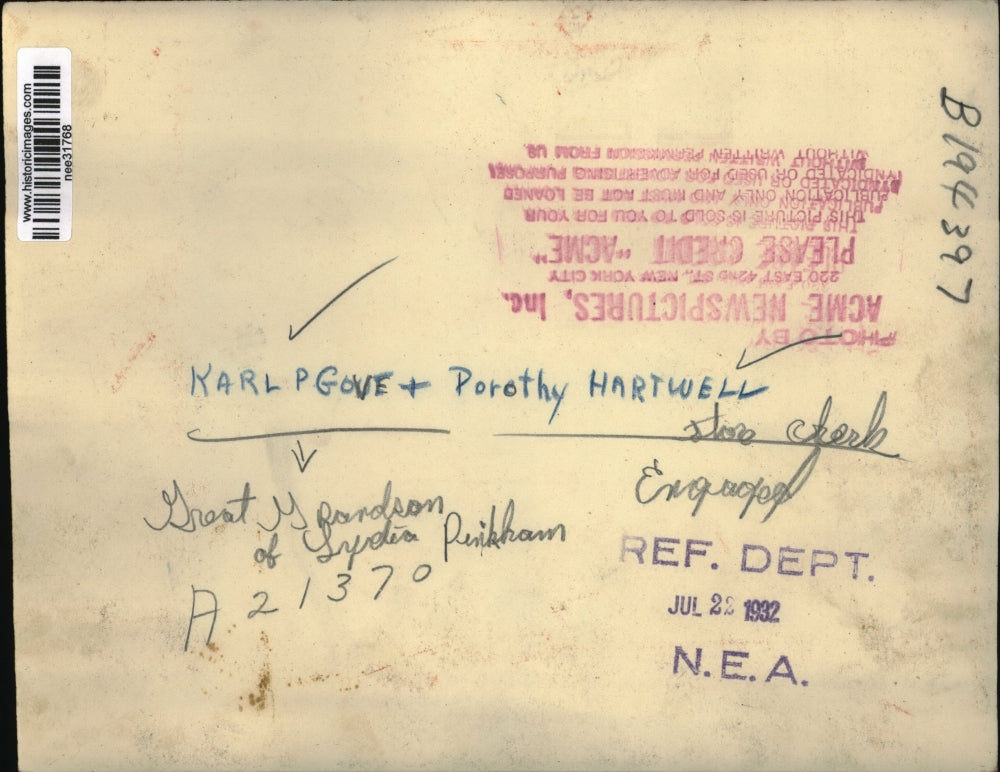 www.historicimages.com
nee31768
B194397
PHOTO BY
ACME NEWSPICTURES, Inc.
220 EAST 42ND ST., NEW YORK CITY
PLEASE CREDIT "ACME"
THIS PICTURE IS SOLD TO YOU FOR YOUR
PUBLICATION ONLY AND MUST NOT BE LOANED
SYNDICATED OR USED FOR ADVERTISING PURPOSES
WITHOUT WRITTEN PERMISSION FROM US
KARL P GOVE + Dorothy HARTWELL
store clerk
Engaged
Great Grandson
of Lydia Pinkham
A21370
REF. DEPT.
JUL 22 1932
N.E.A.